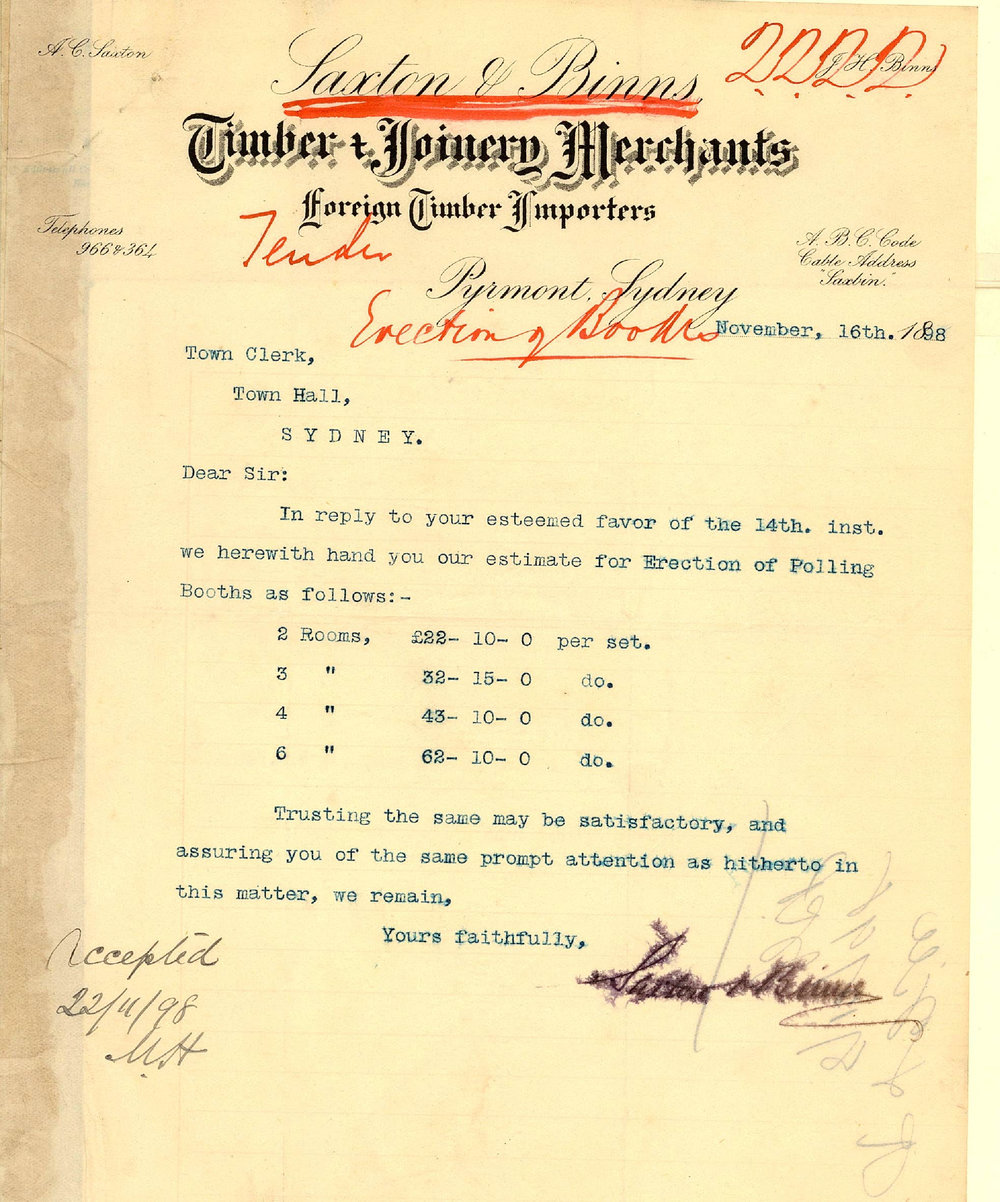 A. C. Saxton
J. H. Binns
Saxton & Binns
Timber & Joinery Merchants
Foreign Timber Importers
Telephones
966 & 364
Tender
A. B. C. Code
Cable Address
"Saxbin".
Pyrmont, Sydney
Erection of Booths
November, 16th. 1898
Town Clerk,
Town Hall,
SYDNEY.
Dear Sir:
In reply to your esteemed favor of the 14th. inst.
we herewith hand you our estimate for Erection of Polling
Booths as follows:-
2 Rooms, £22- 10- 0 per set.
3 " 32- 15- 0 do.
4 " 43- 10- 0 do.
6 " 62- 10- 0 do.
Trusting the same may be satisfactory, and
assuring you of the same prompt attention as hitherto in
this matter, we remain,
Yours faithfully,
Saxton & Binns
Accepted
22/11/98